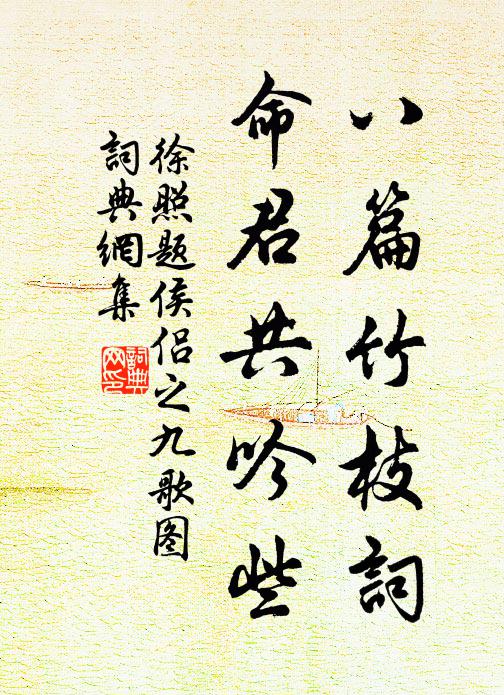 八篇竹枝詞
命君共吟些
徐照題侯侣之九歌图
詞典網集
詞典网印